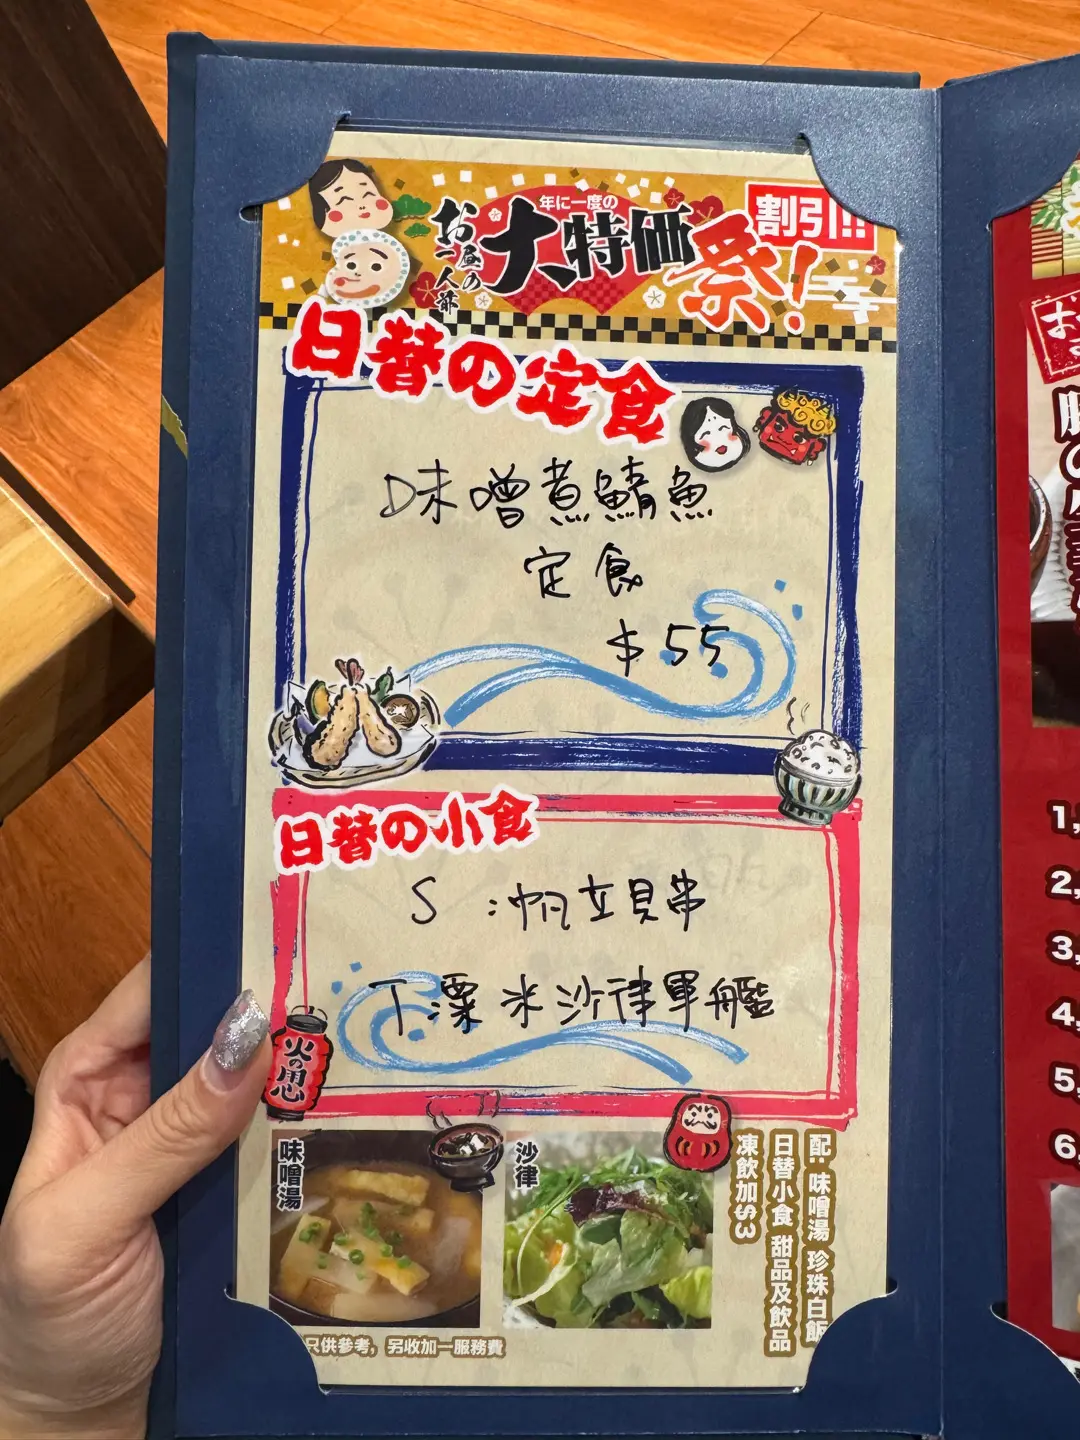 年に一度の
お昼の一人前
大特価祭!
割引!!
日替の定食
味噌煮鯖魚
定食
$55
日替の小食
S :帆立貝串
T 粟米沙律軍艦
火の用心
味噌湯
沙律
配: 味噌湯 珍珠白飯
日替小食 甜品及飲品
凍飲加$3
只供參考，另收加一服務費
1,
2,
3,
4,
5,
6,